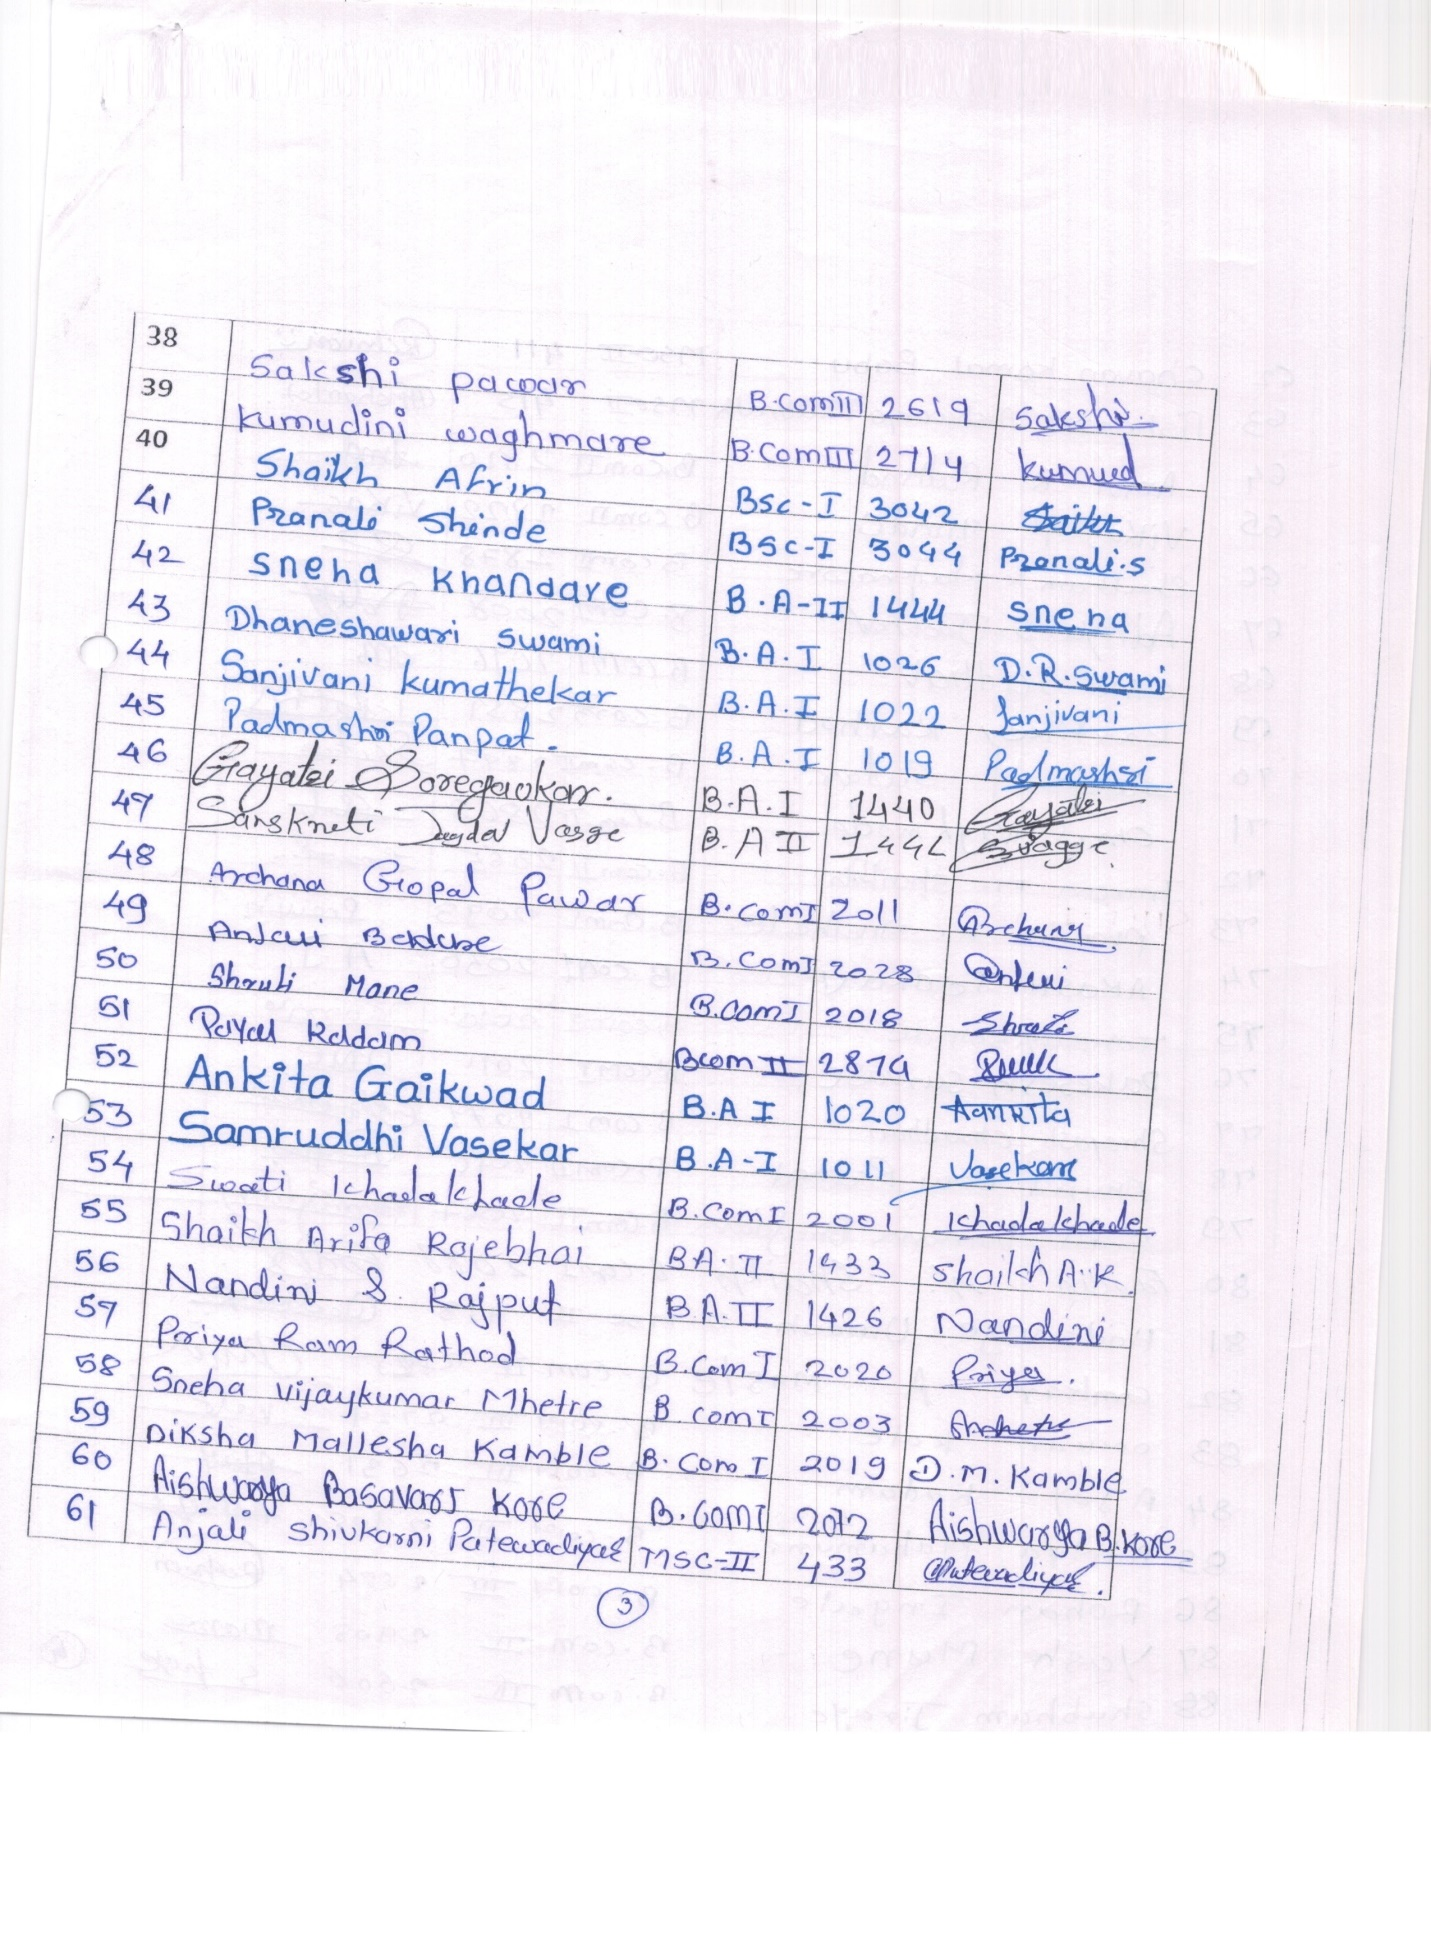 38 Sakshi pawar B.ComIII 2619 Sakshi.
39 Kumudini waghmare B.ComIII 2714 Kumud
40 Shaikh Afrin BSc-I 3042 Saikh
41 Pranali Shinde BSc-I 3044 Pranali.s
42 Sneha Khandare B.A-II 1444 Sneha
43 Dhaneshawari Swami B.A.I 1026 D.R.Swami
44 Sanjivani kumathekar B.A.I 1022 Sanjivani
45 Padmashri Panpat. B.A.I 1019 Padmashri
46 Gayatri Soregaokar. B.A.I 1440 Gayatri
47 Sanskruti Vasge B.A II
48 Archana Gopal Pawar B.ComI 2011
49 Anjali B.ComI 2028
50 Shruti Mane B.ComI 2018 Shruti
51 Payal Kadam Bcom II 2874
52 Ankita Gaikwad B.A I 1020 Aankita
53 Samruddhi Vasekar B.A-I 1011 Vasekar
54 Swati Khadakhade B.ComI 2001 Khadakhade
55 Shaikh Arifa Rajebhai BA.II 1433 Shaikh A.R
56 Nandini S. Rajput B.A.II 1426 Nandini
57 Priya Ram Rathod B.Com I 2020 Priya.
58 Sneha vijaykumar Mhetre B comI 2003
59 Diksha Mallesha Kamble B.Com I 2019 D.M.Kamble
60 Aishwarya Basavaraj Kore B.COMI 2012 Aishwarya B.Kore
61 Anjali Shivkarni Patewadiyar MSC-II 433 Patewadiyar.
3